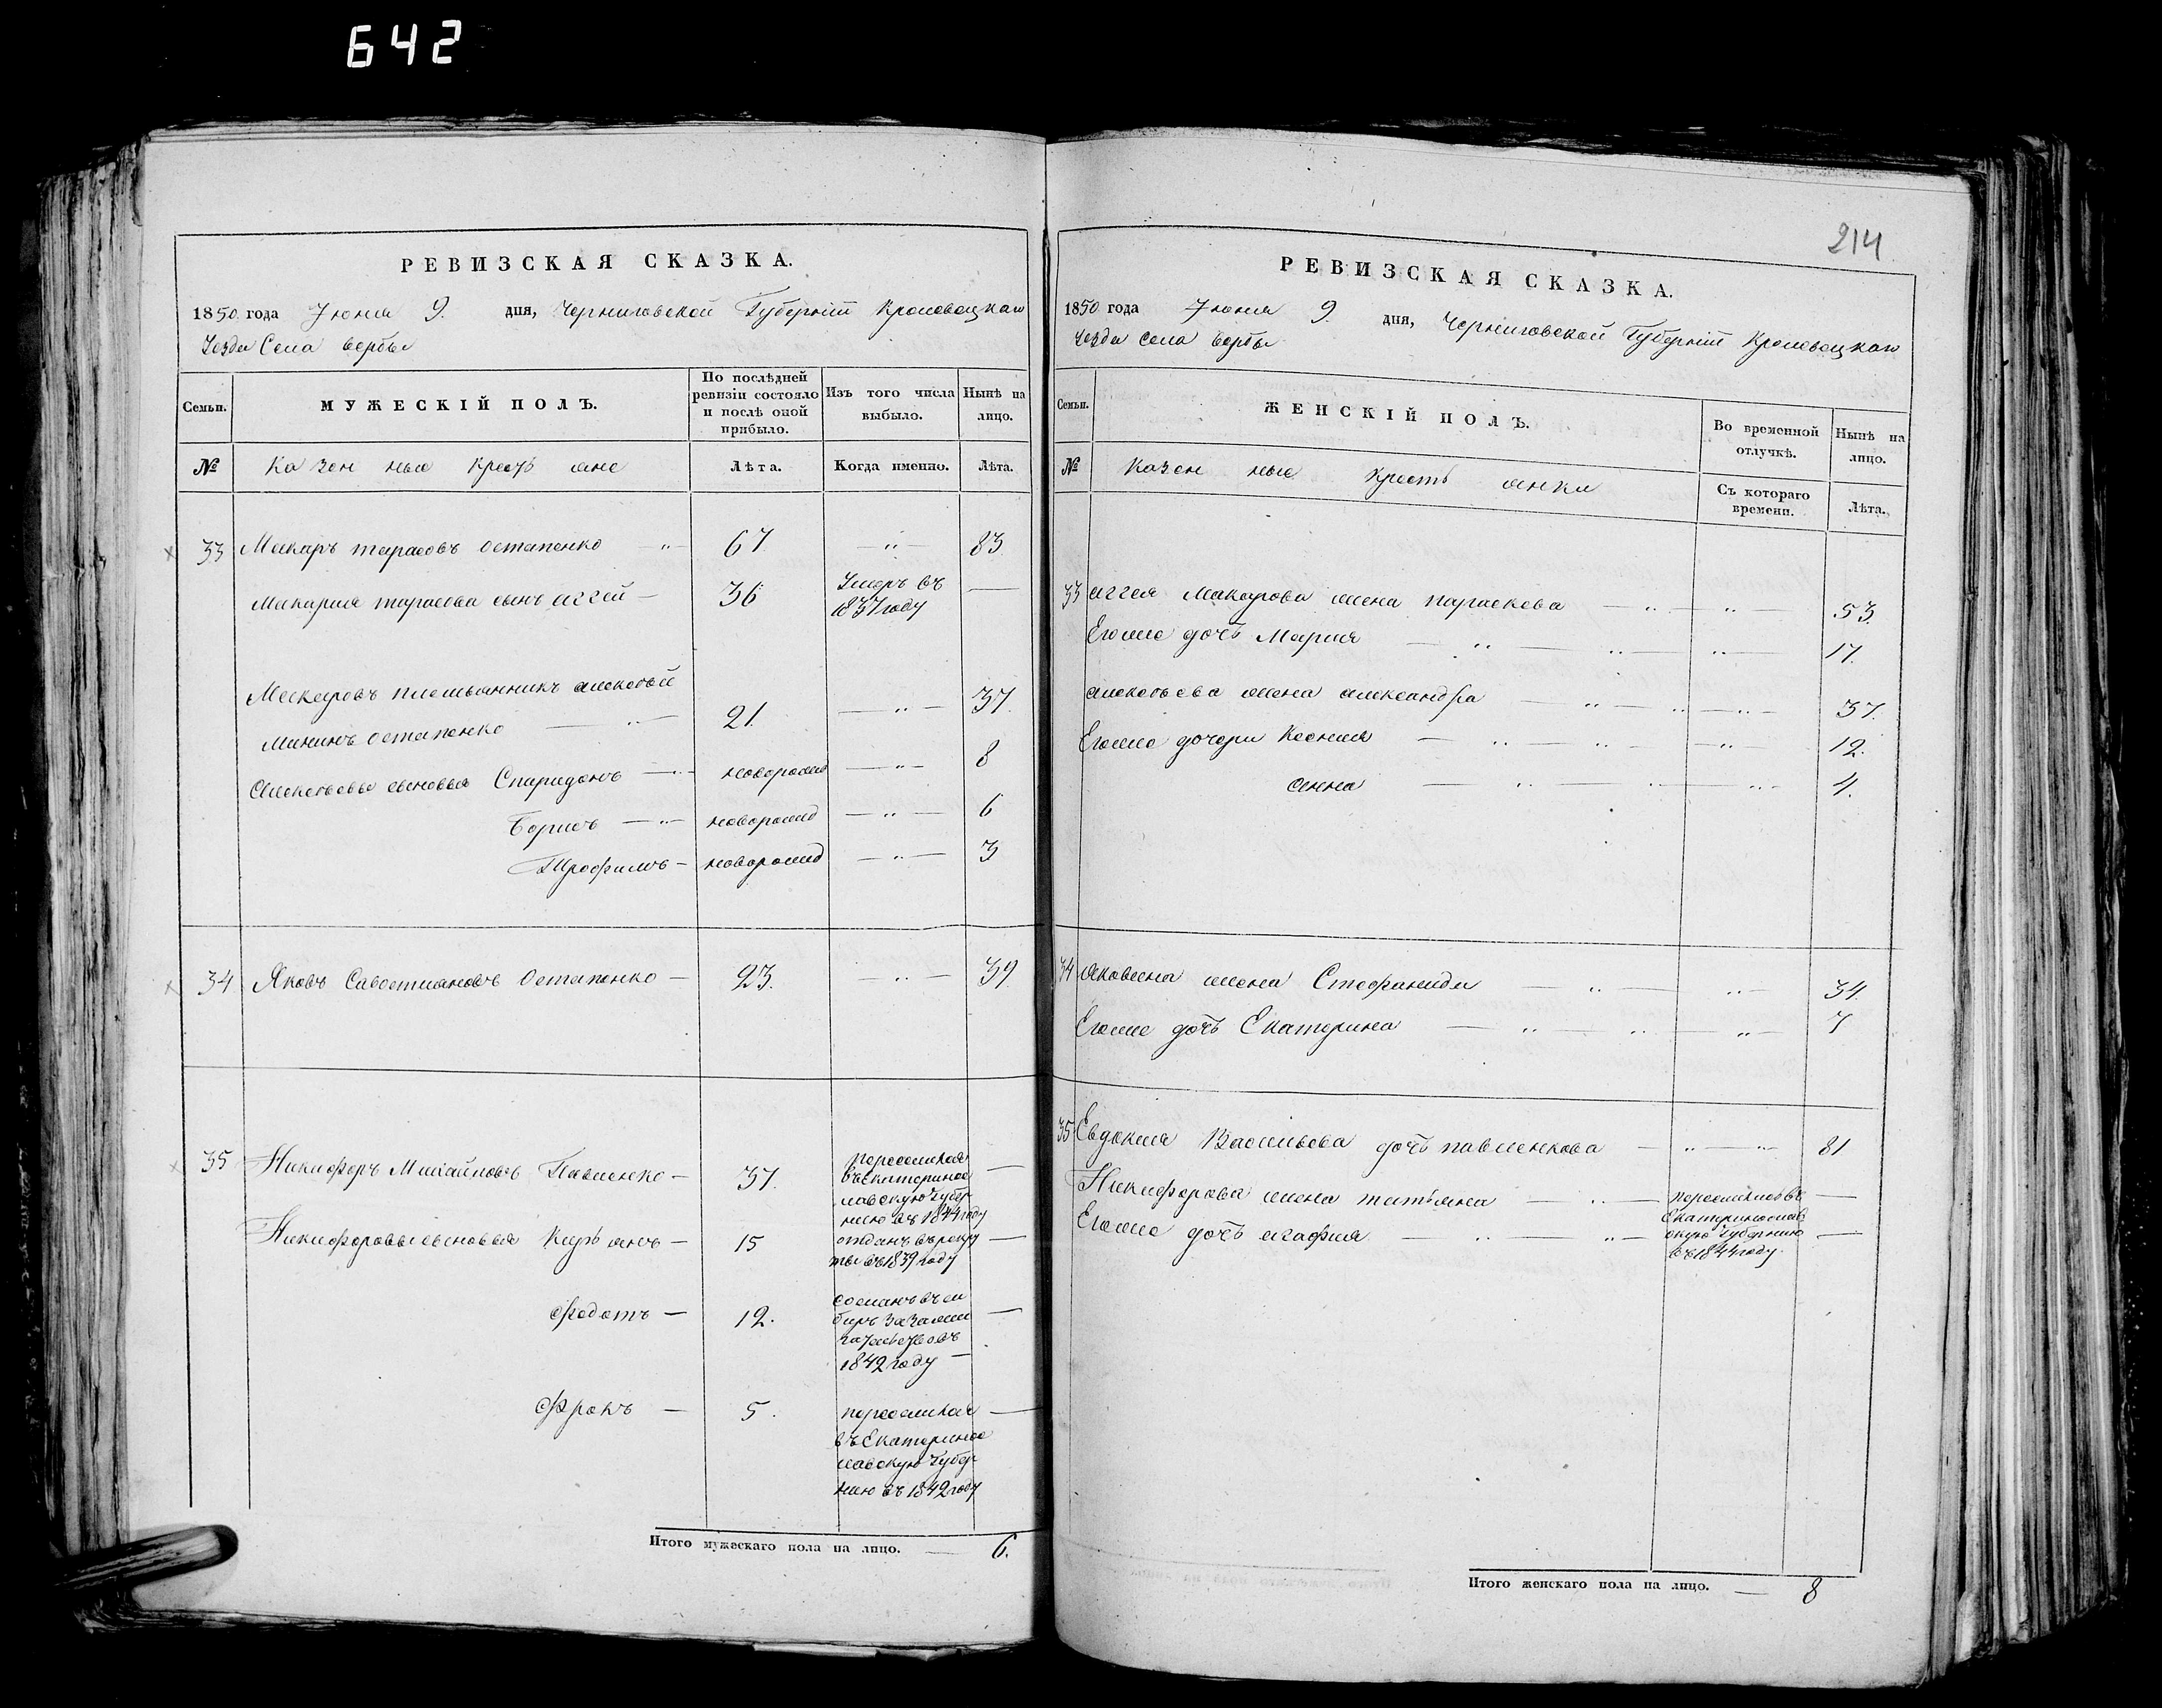 642
РЕВИЗСКАЯ СКАЗКА.
1850 года Июня 9. дня, Черниговской Губерніи Кролевецкаго
Уезда Села Вербы
Семьи.
МУЖЕСКІЙ ПОЛЪ.
По послѣдней ревизіи состояло и послѣ оной прибыло.
Изъ того числа выбыло.
Нынѣ на лицо.
№ Казен ные Кресть яне Лѣта. Когда именно. Лѣта.
33 Макаръ Тарасовъ Остапенко 67. 83
Макария Тарасова сынъ Аггей 36 Умеръ въ
1837 году
Макаровъ племьянникъ Алексѣй
Мининъ Остапенко 21. 37.
Алексѣевы сыновья Спиридонъ новорожд 8
Борисъ новорожд 6
Трофимъ новорожд 3
34 Яковъ Савостиановъ Остапенко 23. 39.
35 Никифоръ Михайловъ Павленко 37. переселился
въ Екатеринос
лавскую Губер
нию въ 1844 году
Никифоровы сыновья Кирьянъ 15 отданъ въ рекру
ты въ 1839 году
Федотъ 12. сосланъ въ си
биръ за
1842 году
5. переселился
въ Екатеринос
лавскую Губер
нию въ 1842 году
Итого мужескаго пола на лицо. 6.
214
РЕВИЗСКАЯ СКАЗКА.
1850 года Июня 9. дня, Черниговской Губерніи Кролевецкаго
Уезда Села Вербы
Семьи.
ЖЕНСКІЙ ПОЛЪ.
Во временной отлучкѣ.
Нынѣ на лицо.
№ Казен ные Кресть янки Съ котораго времени. Лѣта.
33 Аггея Макарова жена Параскева 53.
Егоже дочь Мария 17.
Алексѣева жена Александра 37.
Егоже дочери Ксения 12.
Анна 4.
34 Яковлена жена Стефанида 34.
Егоже дочь Екатерина 7
35 Евдокия Васильева дочь Павленкова 81
Никифорова жена Татьяна переселились въ
Егоже дочь Агафия Екатеринослав
скую Губернию
въ 1844 году.
Итого женскаго пола на лицо. 8